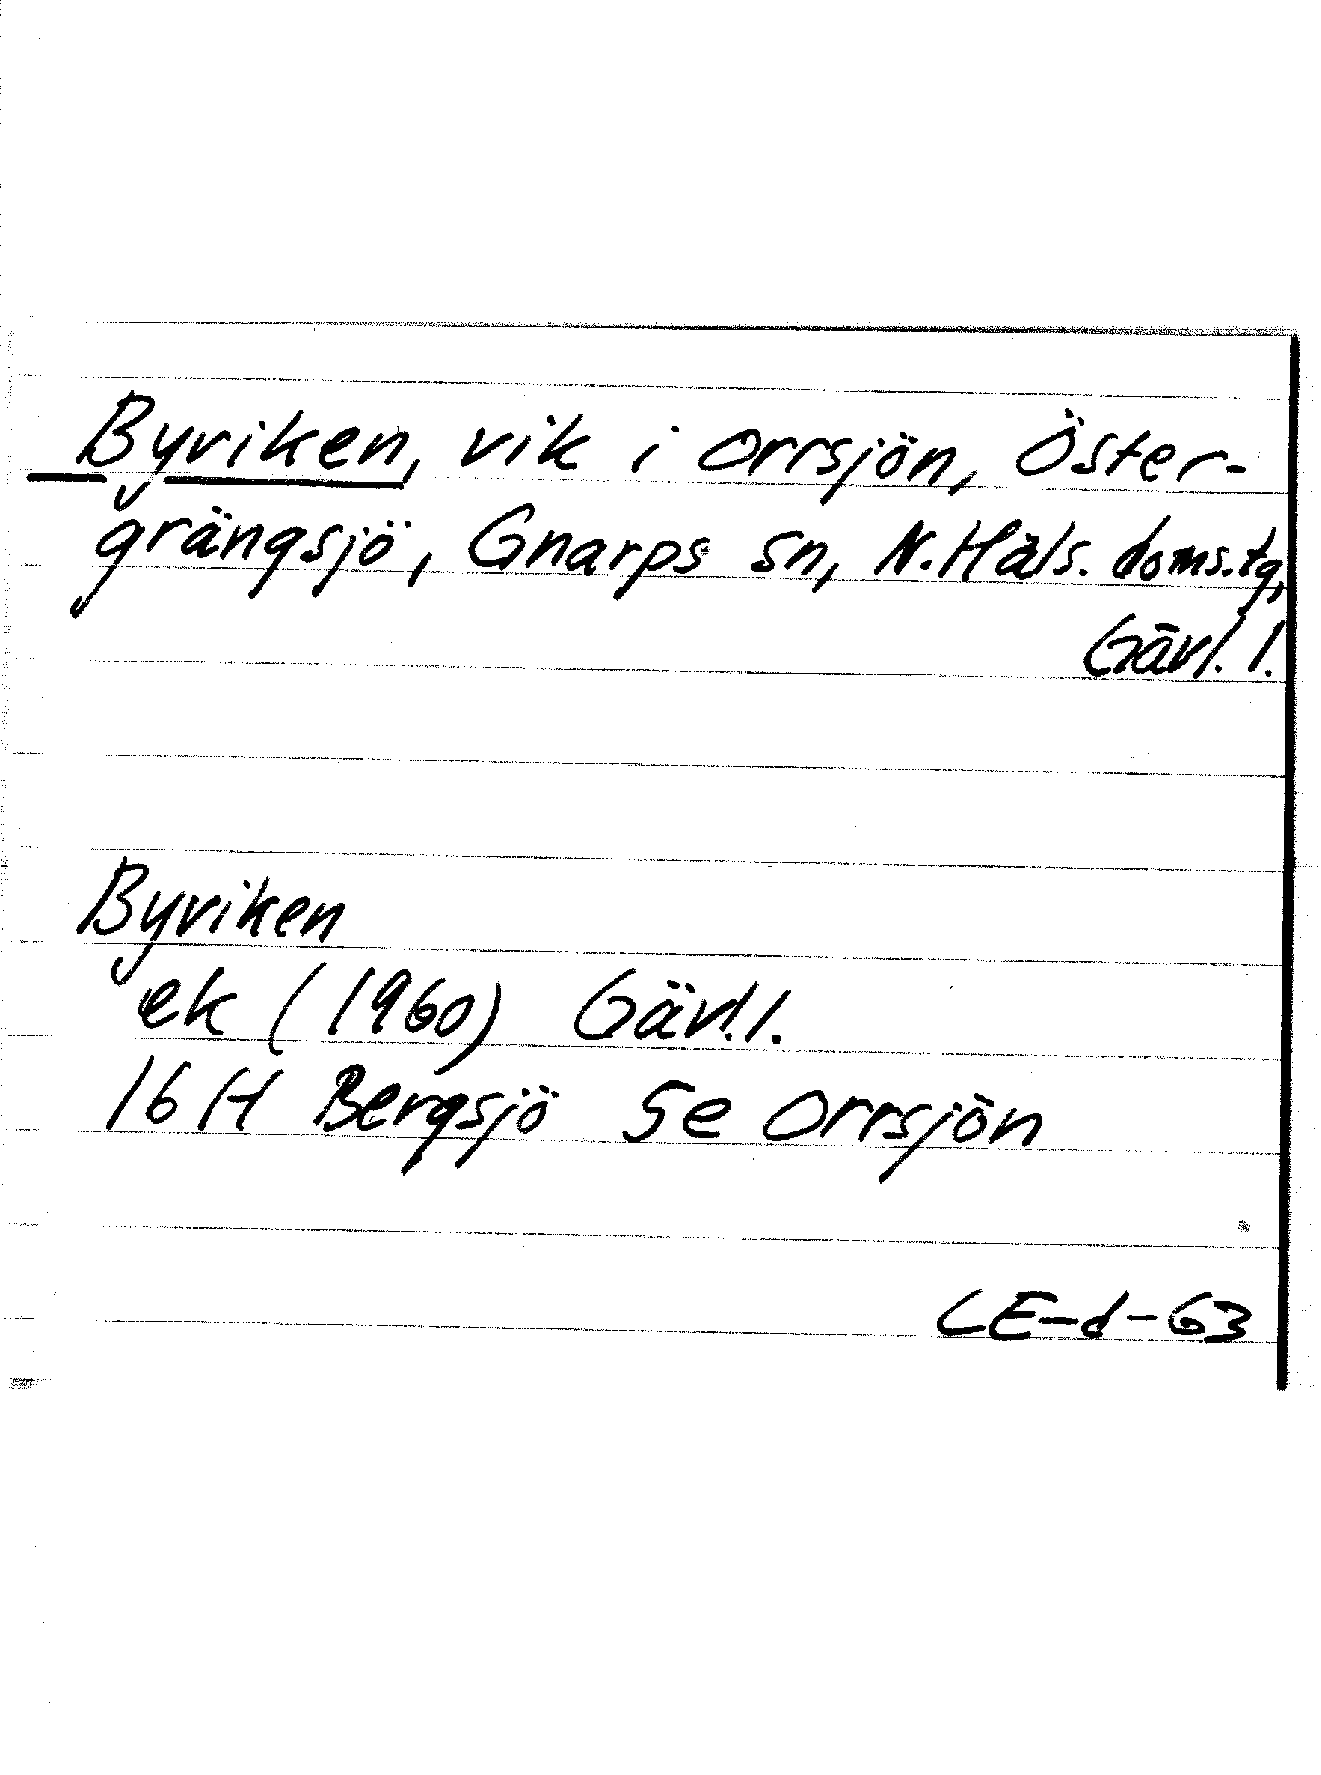 Byviken, vik i Orrsjön, Öster-
grängsjö, Gnarps sn, N.Häls. doms.tg,
Gävl. l.
Byviken
ek (1960) Gävl.l.
16 H Bergsjö 5e Orrsjön
LE-d-63